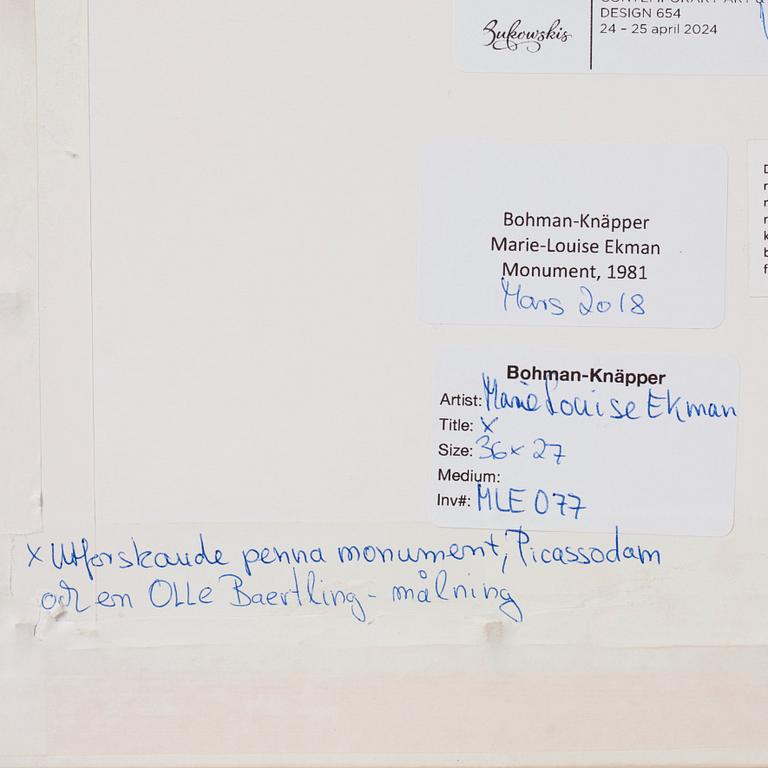 DESIGN 654
Bukowskis
24 – 25 april 2024
Bohman-Knäpper
Marie-Louise Ekman
Monument, 1981
Mars 2018
Bohman-Knäpper
Artist: Marie Louise Ekman
Title: X
Size: 36 x 27
Medium:
Inv#: MLE 077
x Utforskande penna monument, Picassodam
och en OLLe Baertling - målning